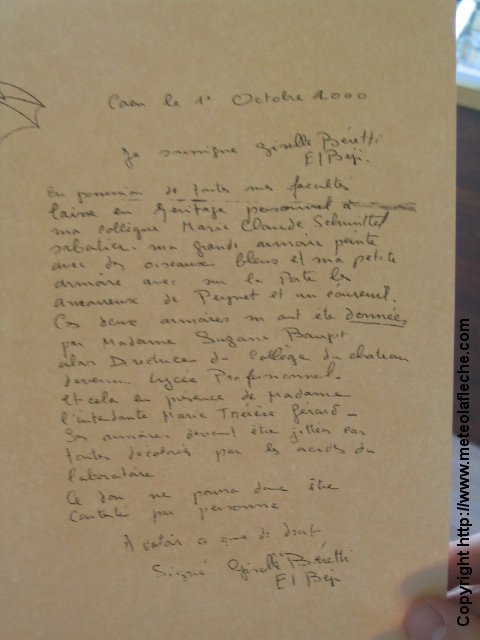 Caen le 1° Octobre 2000
Je soussigné Giselle Béretti
El Beji.
En possession de toutes mes facultés
laisse en héritage personnel à
ma collègue Marie Claude Schmittel
sabatier. ma grande armoire peinte
avec des oiseaux bleus et ma petite
armoire avec sur la Porte les
amoureux de Peynet et un écureuil.
Ces deux armoires m'ont été données
par Madame Suzanne
alors Directrice du Collège du chateau
devenu Lycée Professionnel.
Et cela en présence de Madame
l'intendante Marie Thérèse Gérard -
Ces armoires devant être jettées car
toutes décolorées par les acides du
laboratoire
Ce don ne pourra donc être
Contesté par personne
A valoir ce que de droit
Signé Giselle Béretti
El Beji.
Copyright http://www.meteolafleche.com